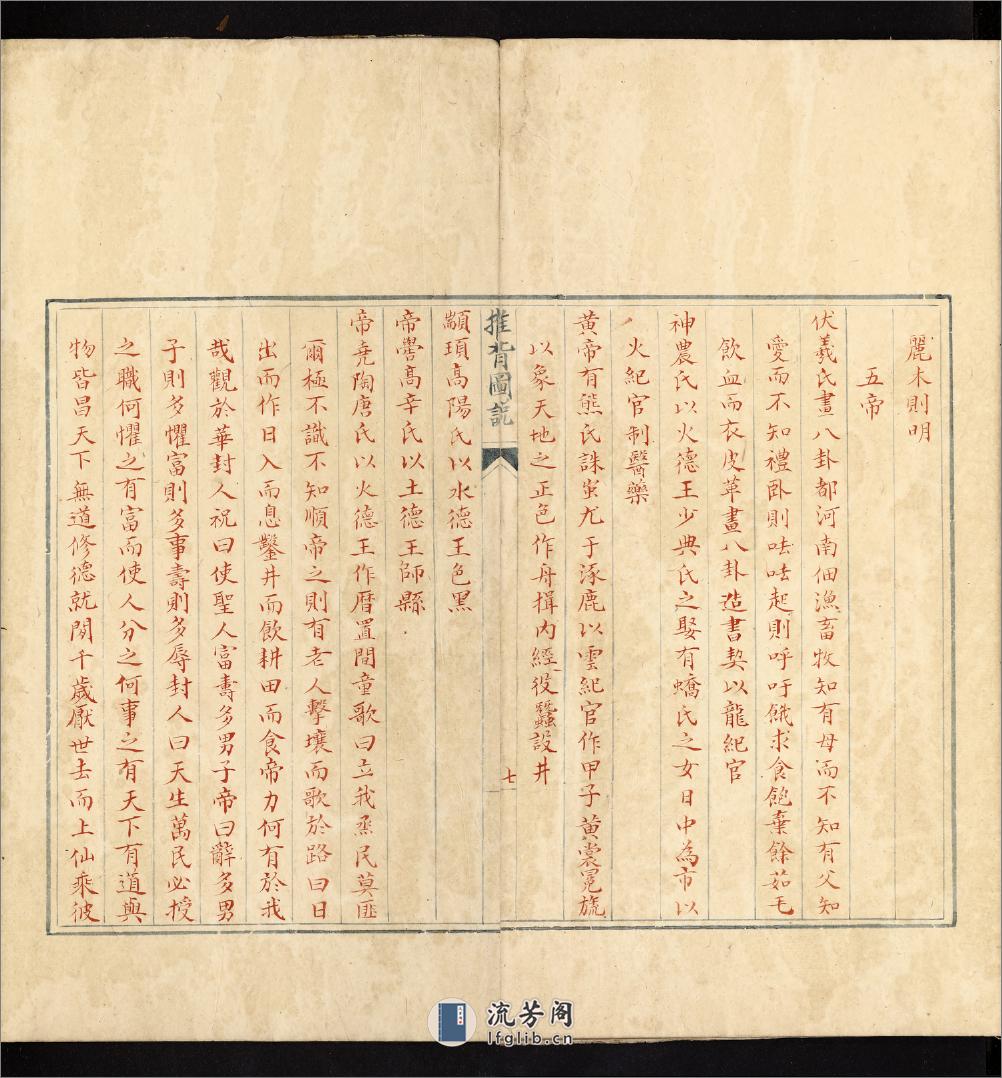 麗未則明
五帝
伏羲氏畫八卦都河南佃漁畜牧知有母而不知有父知
愛而不知禮卧則呿呿起則呼吁餓求食飽棄餘茹毛
飲血而衣皮革畫八卦造書契以龍紀官
神農氏以火德王少典氏之娶有蟜氏之女日中為市以
火紀官制醫藥
黄帝有熊氏誅蚩尤于涿鹿以雲紀官作甲子黄裳冕旒
以象天地之正色作舟揖内經役蠶設井
推背圖說
七
顓頊高陽氏以水德王色黑
帝嚳高辛氏以土德王師縣
帝堯陶唐氏以火德王作曆置閏童歌曰立我烝民莫匪
爾極不識不知順帝之則有老人擊壤而歌於路曰日
出而作日入而息鑿井而飲耕田而食帝力何有於我
哉觀於華封人祝曰使聖人富壽多男子帝曰辭多男
子則多懼富則多事壽則多辱封人曰天生萬民必授
之職何懼之有富而使人分之何事之有天下有道與
物皆昌天下無道修德就閒千歲厭世去而上仙乘彼
流芳阁
lfglib.cn